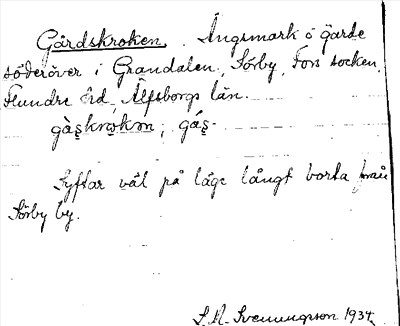 Gårdskroken. Ängsmark o gärde
söderöver i Grandalen, Sörby, Fors socken.
Flundre hd, Älfsborgs län.
gàs̨krokən, gás̨-
Syftar väl på läge långt borta från
Sörby by.
S. A. Svenungsson 1934.